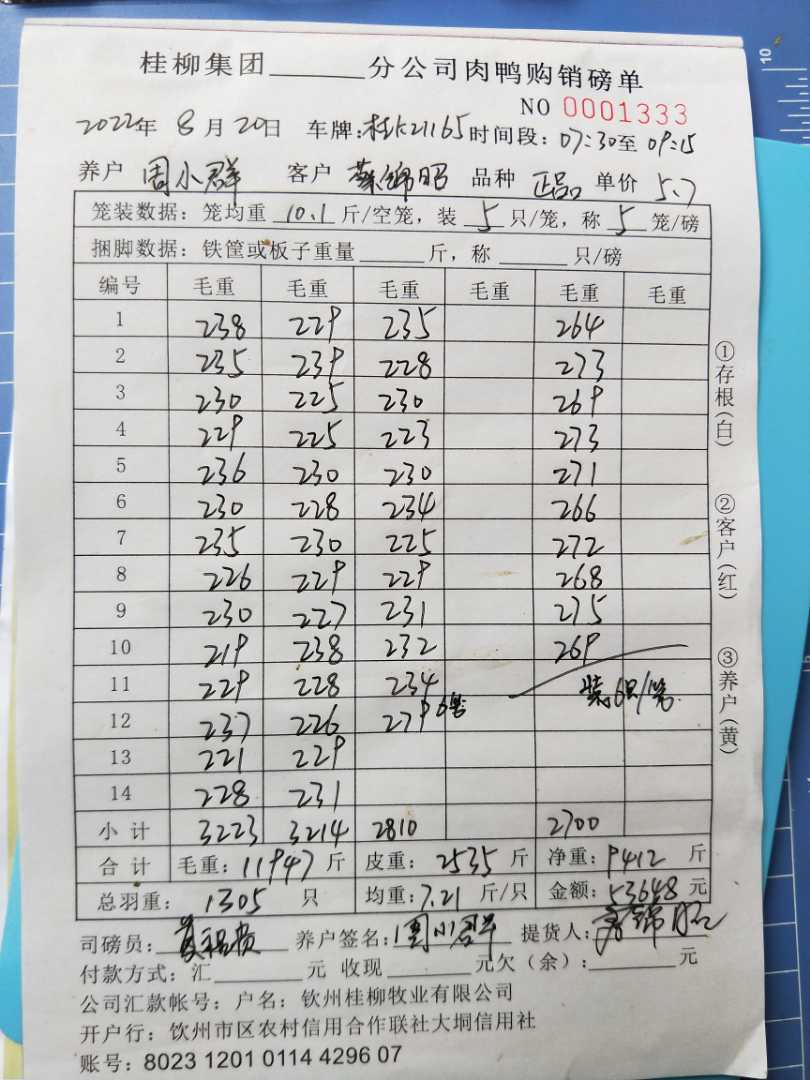 桂柳集团______分公司肉鸭购销磅单
NO 0001333
2022年 8月20日 车牌:桂K21165 时间段:07:30至09:15
养户 周小群 客户 蔡锦昭 品种 正品 单价 5.7
笼装数据:笼均重 10.1 斤/空笼,装 5 只/笼,称 5 笼/磅
捆脚数据:铁筐或板子重量______斤,称______只/磅
编号 毛重 毛重 毛重 毛重 毛重 毛重
1 238 229 235 264
2 235 239 228 273
3 230 225 230 269
4 229 225 223 273
5 236 230 230 271
6 230 228 234 266
7 235 230 225 272
8 226 229 229 268
9 230 227 231 275
10 219 238 232 269
11 229 228 234 装6只/笼
12 237 226 279 6笼
13 221 229
14 228 231
小计 3223 3214 2810 2700
合计 毛重:11947斤 皮重:2535斤 净重:9412斤
总羽重:1305只 均重:7.21斤/只 金额:53648元
司磅员: 养户签名:周小群 提货人:蔡锦昭
付款方式:汇______元 收现______元欠(余):______元
公司汇款帐号:户名:钦州桂柳牧业有限公司
开户行:钦州市区农村信用合作联社大垌信用社
账号:8023 1201 0114 4296 07
①存根(白)
②客户(红)
③养户(黄)